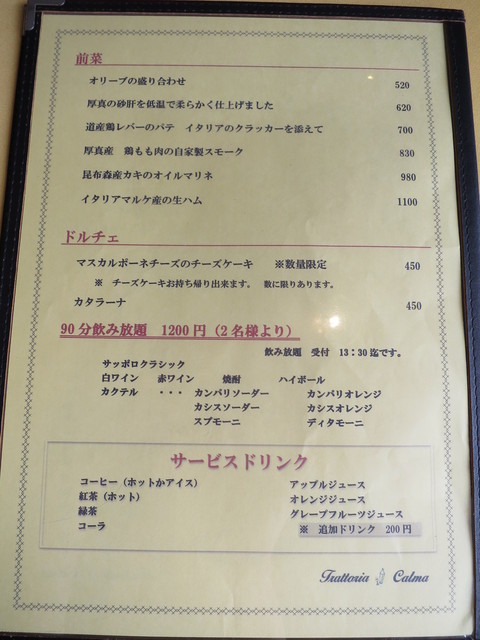 前菜
オリーブの盛り合わせ 520
厚真の砂肝を低温で柔らかく仕上げました 620
道産鶏レバーのパテ イタリアのクラッカーを添えて 700
厚真産 鶏もも肉の自家製スモーク 830
昆布森産カキのオイルマリネ 980
イタリアマルケ産の生ハム 1100
ドルチェ
マスカルポーネチーズのチーズケーキ ※数量限定 450
※ チーズケーキお持ち帰り出来ます。 数に限りあります。
カタラーナ 450
90分飲み放題 1200円(2名様より)
飲み放題 受付 13:30迄です。
サッポロクラシック
白ワイン 赤ワイン 焼酎 ハイボール
カクテル ・・・ カンパリソーダー カンパリオレンジ
カシスソーダー カシスオレンジ
スプモーニ ディタモーニ
サービスドリンク
コーヒー(ホットかアイス) アップルジュース
紅茶(ホット) オレンジジュース
緑茶 グレープフルーツジュース
コーラ ※ 追加ドリンク 200円
Trattoria Calma